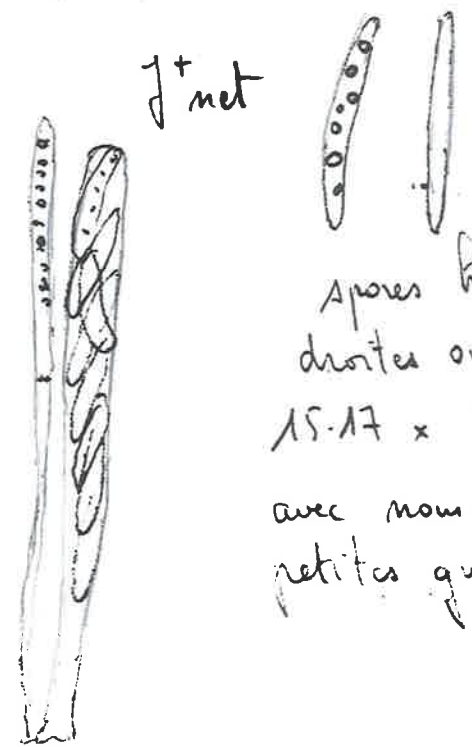 J⁺ net
spores
droites
15-17 ×
avec
petites